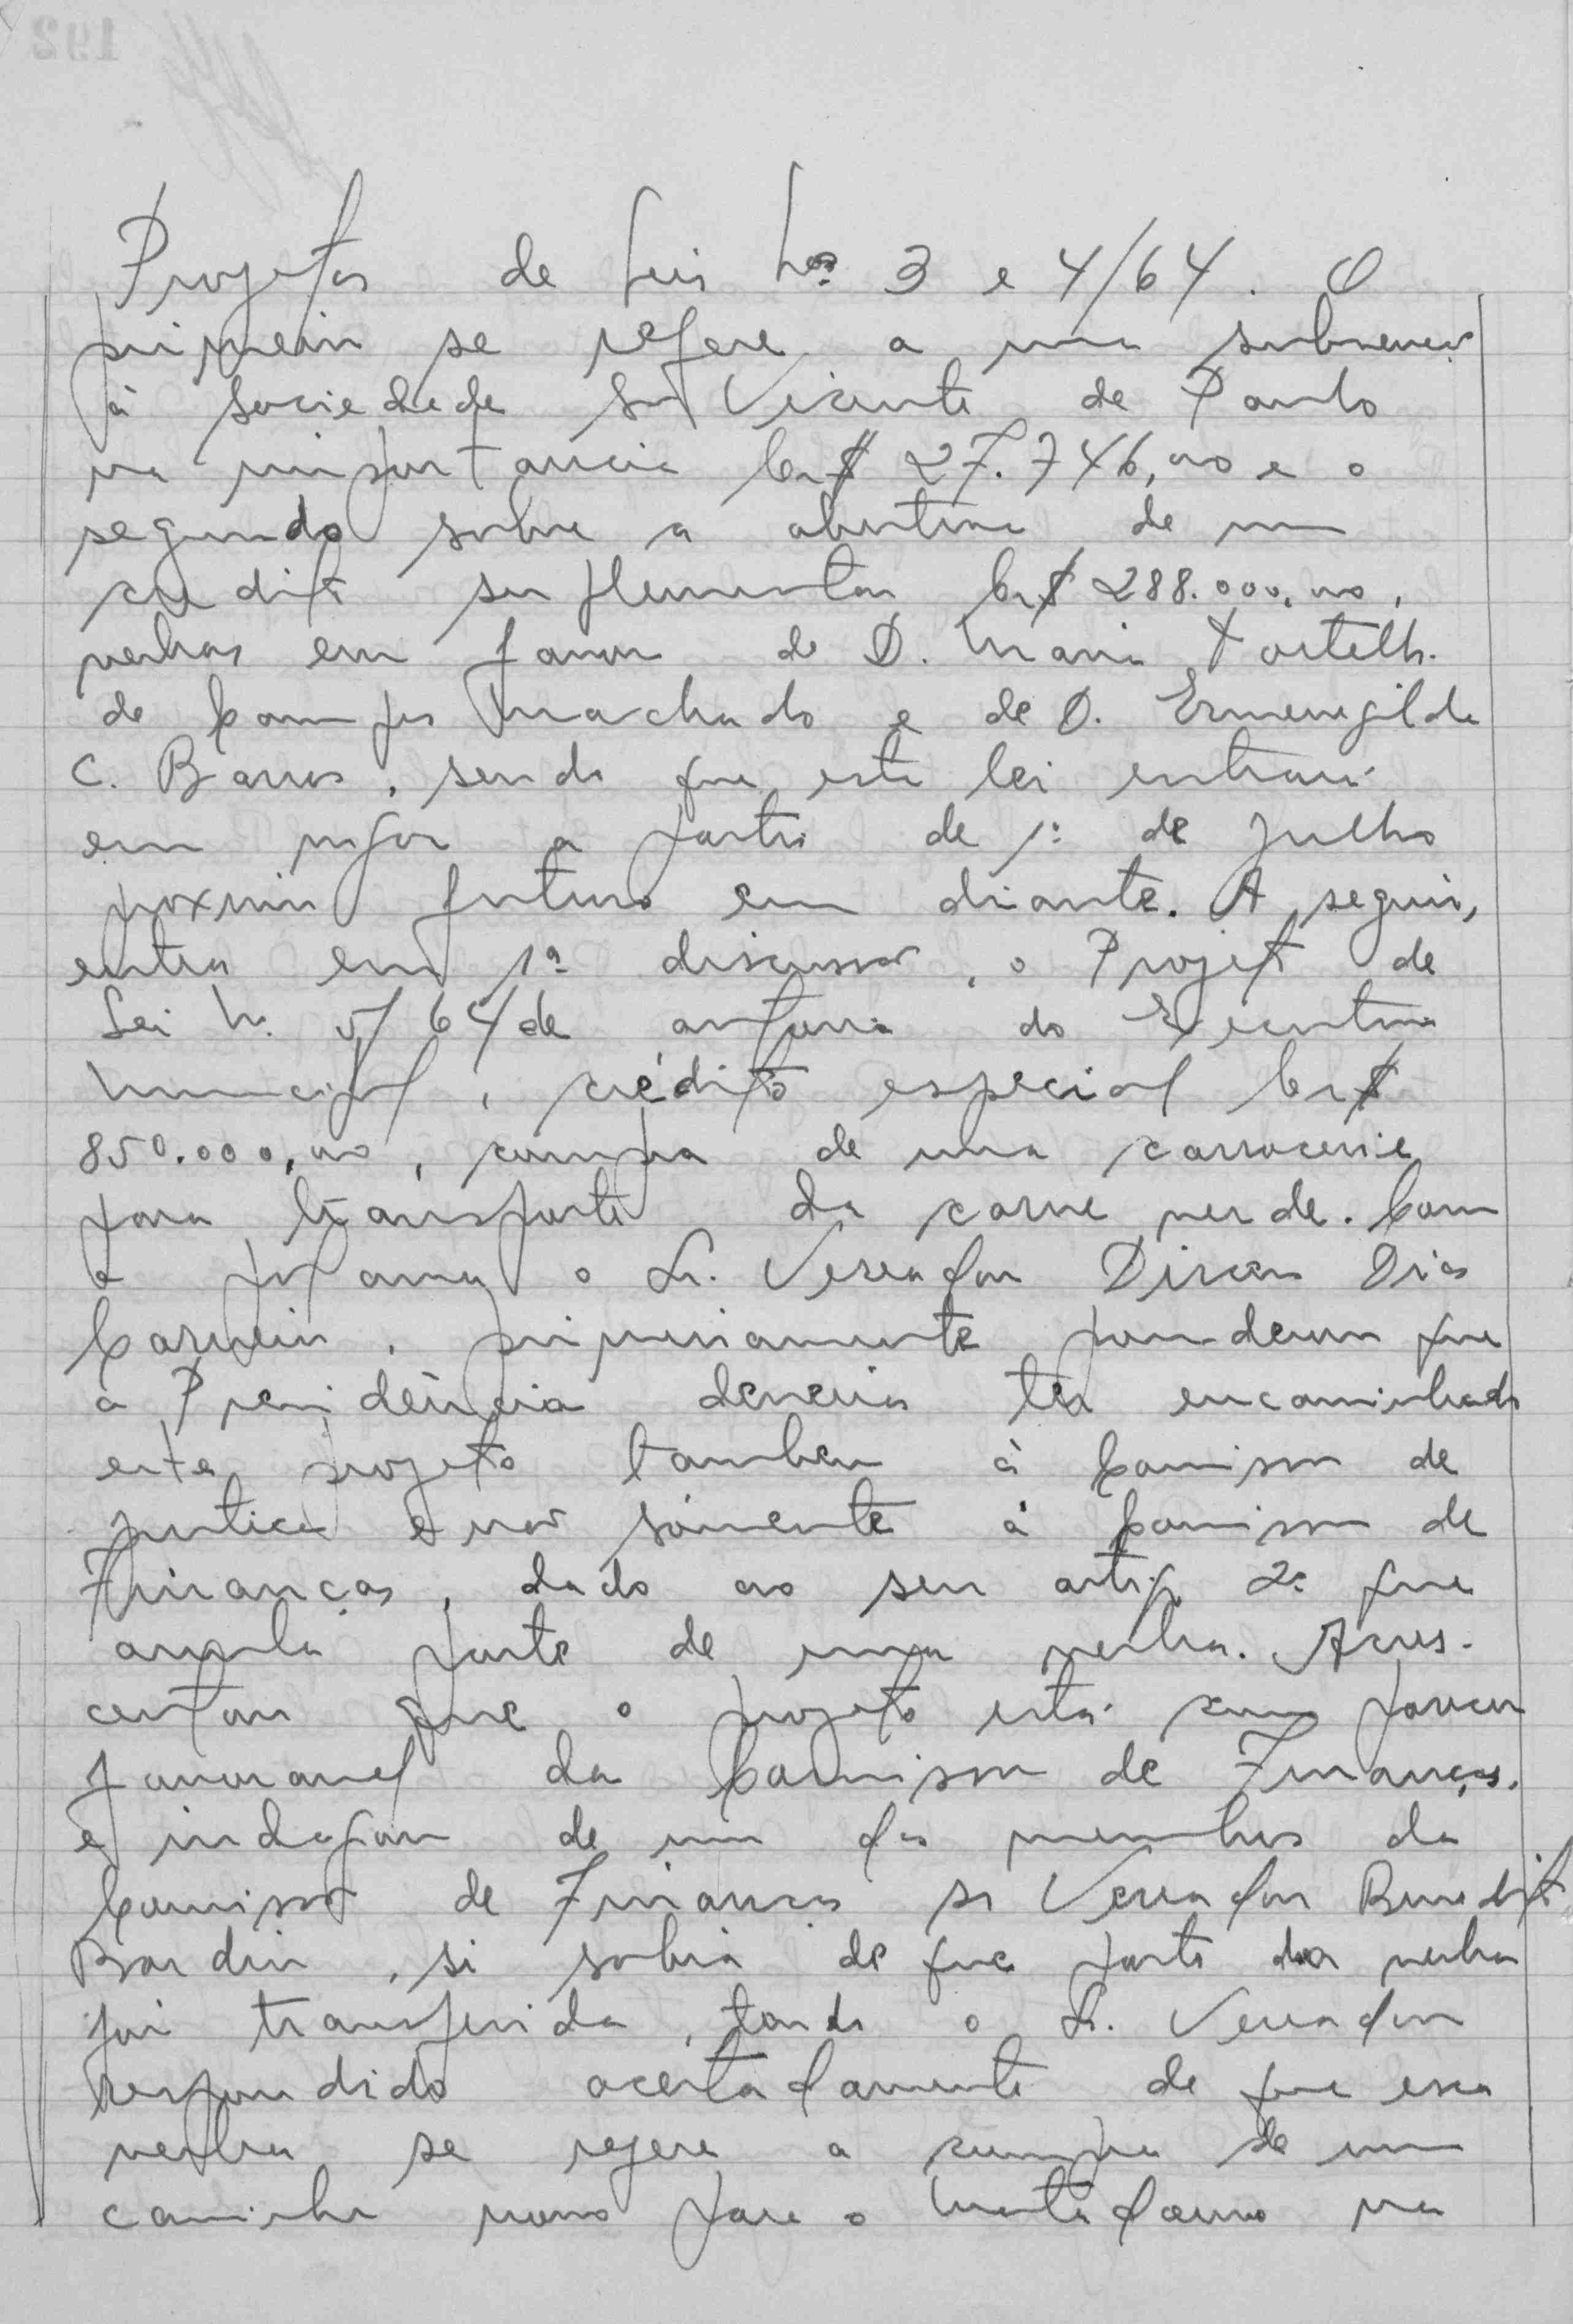 Projetos de Leis Nos. 3 e 4/64. O
primeiro se refere a uma subvenção
à Sociedade São Vicente de Paulo
na importancia Cr$ 27.746,00 e o
segundo sobre a abertura de um
credito suplementar Cr$ 288.000,00,
verbas em favor de D. Maria Portelh.
de Campos Machado e de D. Ermenegilda
C. Barros, sendo que esta lei entrará
em vigor a partir de 1º de Julho
proximo futuro em diante. A seguir,
entra em 1ª discussão, o Projeto de
Lei N. 5/64 de autoria do Executivo
Municipal, crédito especial Cr$
850.000,00, compra de uma carroceria
para transporte da carne verde. Com
a palavra o Sr. Vereador Dirceu Dias
Carneiro, primeiramente ponderou que
a Presidência deveria ter encaminhado
este projeto tambem à Comissão de
Justiça e não sómente à Comissão de
Finanças, dado ao seu artigo 2º que
anula parte de uma verba. Acres-
centou que o projeto está com parecer
favoravel da Comissão de Finanças,
e indagou de um dos membros da
Comissão de Finanças sr Vereador Benedito
Bardin, si sabia de que parte da verba
foi transferida, tendo o Sr. Vereador
respondido acertadamente de que essa
verba se refere a compra de um
caminhão novo para o Matadouro na